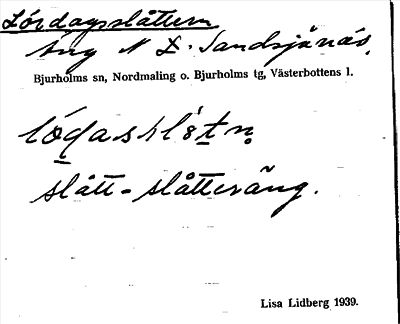 Lördagsslåttern
äng N L. Sandsjönäs.
Bjurholms sn, Nordmaling o. Bjurholms tg, Västerbottens l.
slått-slåtteräng.
Lisa Lidberg 1939.